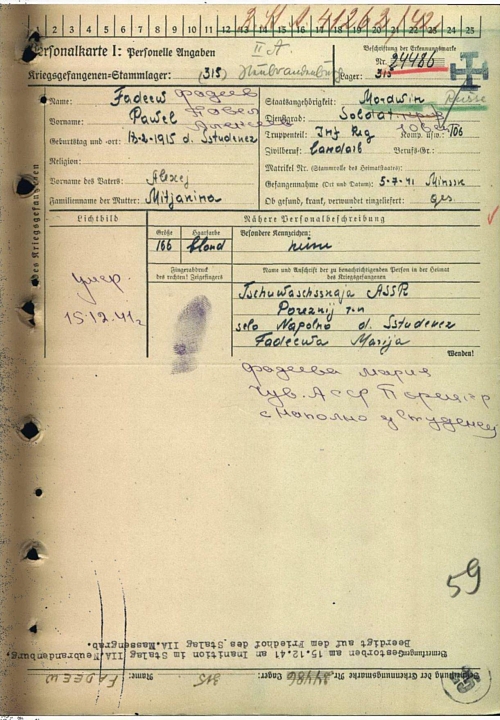 1 2 3 4 5 6 7 8 9 10 11 12 13 14 15 16 17 18 19 20 21 22 23 24 25
Personalkarte I: Personelle Angaben
II A.
Beschriftung der Erkennungsmarke
Nr. 24486
Kriegsgefangenen-Stammlager: (315) Neubrandenburg
Lager: 315
Name: Fadeew Фадеев
Staatsangehörigkeit: Mordwin Russe
Vorname: Pawel Павел
Алексеев
Dienstgrad: Soldat
Truppenteil: Inf Reg Komp. usw.: 106
Geburtstag und -ort: 18-2-1915 d. Sstudenez
Zivilberuf: Landarb Berufs-Gr.:
Religion:
Matrikel Nr. (Stammrolle des Heimatstaates):
Vorname des Vaters: Alexej
Gefangennahme (Ort und Datum): 5-7-41 Minssk
Familienname der Mutter: Mitjanina
Ob gesund, krank, verwundet eingeliefert: ges
Lichtbild
Nähere Personalbeschreibung
Größe Haarfarbe Besondere Kennzeichen:
166 blond keine
Fingerabdruck
des rechten! Zeigefingers
Name und Anschrift der zu benachrichtigenden Person in der Heimat
des Kriegsgefangenen
умер.
15.12.41г
Tschuwaschsskaja ASSR
Porezkij r-n
selo Napolno d. Sstudenez
Fadeewa Marija
Wenden!
Фадеева Мария
Чув. АССР
с Наполно д Студенец
59
Beerdigt auf dem Friedhof des Stalag IIA. Massengrab.
Bemerkungen: Gestorben am 15.12.41 an Inanition im Stalag IIA. Neubrandenburg.
Beschriftung der Erkennungsmarke Nr. 24486 Lager: 315 Name: FADEEW